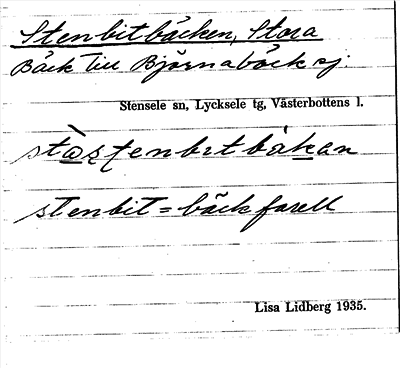 Stenbitbäcken, Stora
Bäck till Björnabäcksj.
Stensele sn, Lycksele tg, Västerbottens l.
stenbit = bäckforell
Lisa Lidberg 1935.